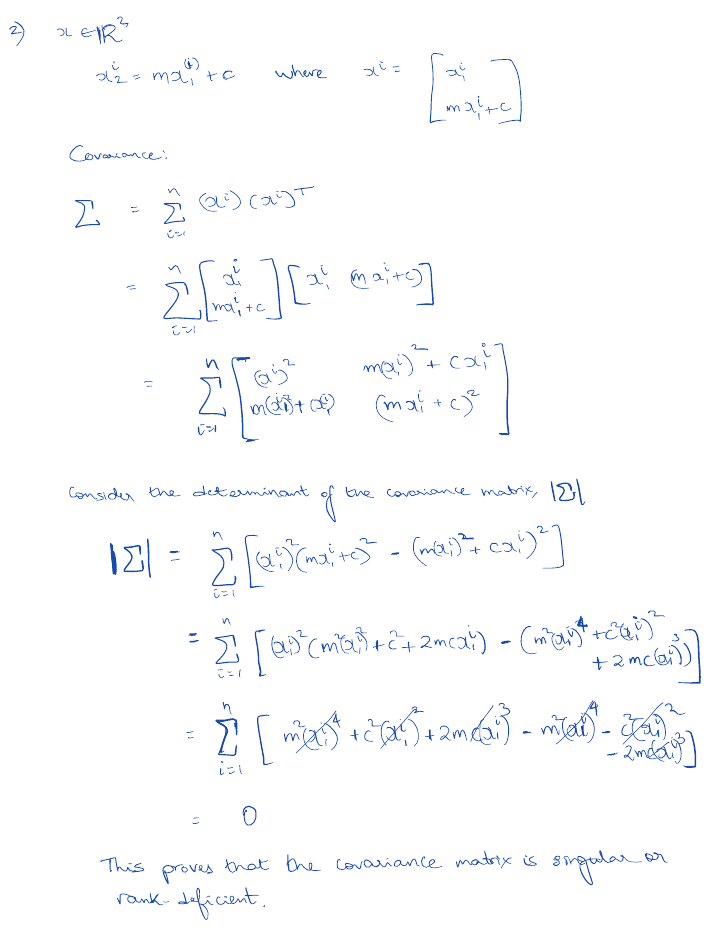 2) x ∈ ℝ²
x₂ⁱ = mx₁⁽ⁱ⁾ + c where xⁱ = [x₁ⁱ ; mx₁ⁱ+c]
Covariance:
Σ = Σᵢ₌₁ⁿ (xⁱ)(xⁱ)ᵀ
= Σᵢ₌₁ⁿ [x₁ⁱ ; mx₁ⁱ+c] [x₁ⁱ (mx₁ⁱ+c)]
= Σᵢ₌₁ⁿ [(x₁ⁱ)² m(x₁ⁱ)² + cx₁ⁱ ; m(x₁ⁱ)² + cx₁ⁱ (mx₁ⁱ + c)²]
Consider the determinant of the covariance matrix, |Σ|
|Σ| = Σᵢ₌₁ⁿ [(x₁ⁱ)²(mx₁ⁱ+c)² - (m(x₁ⁱ)² + cx₁ⁱ)²]
= Σᵢ₌₁ⁿ [(x₁ⁱ)²(m²(x₁ⁱ)² + c² + 2mcx₁ⁱ) - (m²(x₁ⁱ)⁴ + c²(x₁ⁱ)² + 2mc(x₁ⁱ)³)]
= Σᵢ₌₁ⁿ [m²(x₁ⁱ)⁴ + c²(x₁ⁱ)² + 2mc(x₁ⁱ)³ - m²(x₁ⁱ)⁴ - c²(x₁ⁱ)² - 2mc(x₁ⁱ)³]
= 0
This proves that the covariance matrix is singular or
rank-deficient.